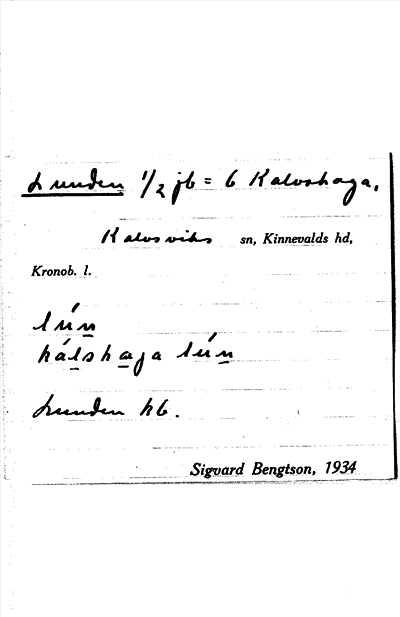 Lunden 1/2 jb = 6 Kalvshaga.
Kalvsviks sn, Kinnevalds hd,
Kronob. l.
lún
kálshaga lún
Lunden kb.
Sigvard Bengtson, 1934